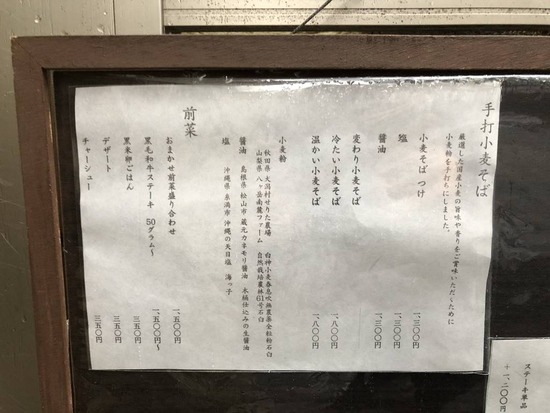 手打小麦そば
厳選した国産小麦の旨味や香りをご賞味いただくために
小麦粉を手打ちにしました。
小麦そば つけ 一、三〇〇円
塩 一、三〇〇円
醤油 一、三〇〇円
変わり小麦そば
冷たい小麦そば 一、八〇〇円
温かい小麦そば 一、八〇〇円
小麦粉
秋田県 大潟村せりた農場 白神小麦春息吹無農薬全粒粉石臼
山梨県 八ヶ岳南麓ファーム 自然栽培農林61号石臼
醤油 島根県 松山市 蔵元カネモリ醤油 木桶仕込みの生醤油
塩 沖縄県 糸満市 沖縄の天日塩 海っ子
前菜
おまかせ前菜盛り合わせ 一、五〇〇円
黒毛和牛ステーキ 50グラム〜 一、五〇〇円〜
黒米卵ごはん 三五〇円
デザート 三五〇円
チャーシュー 三五〇円
ステーキ単品
+一、二〇〇円